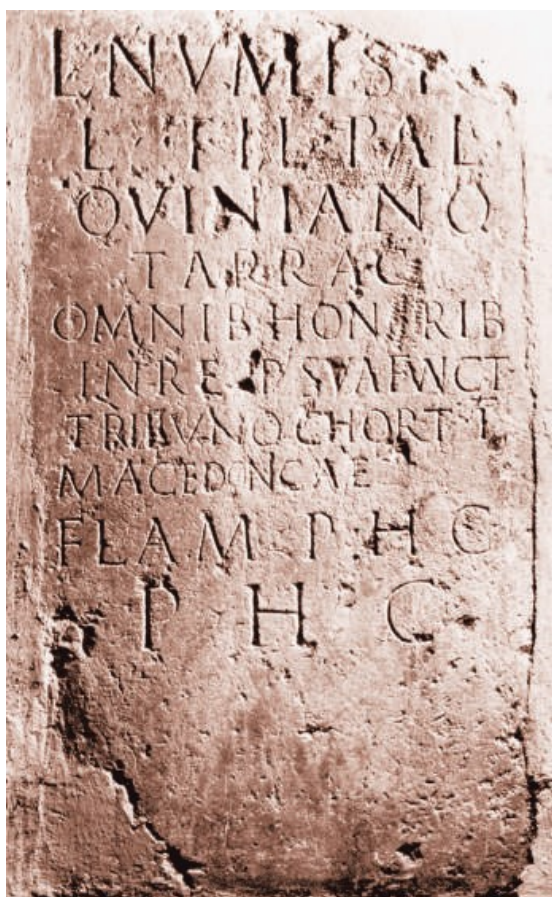 L NVMISI
L · FIL · PAL
QVINIANO
TARRAC
OMNIB HONORIB
IN RE · P · SVA FVNCT
TRIBVNO CHORT · I
MACEDONICAE
FLAM · P · H · C
P H C